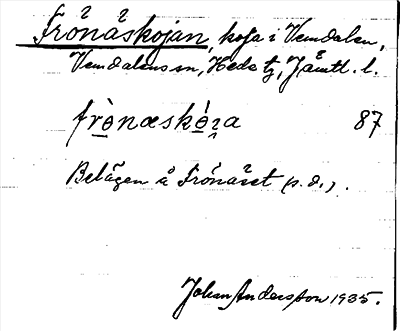 Frönäskojan, koja i Vemdalen,
Vemdalens sn, Hede tg, Jämtl. l.
frònæskóɪa 87
Belägen å Frönäset (s. d.).
Johan Andersson 1935.